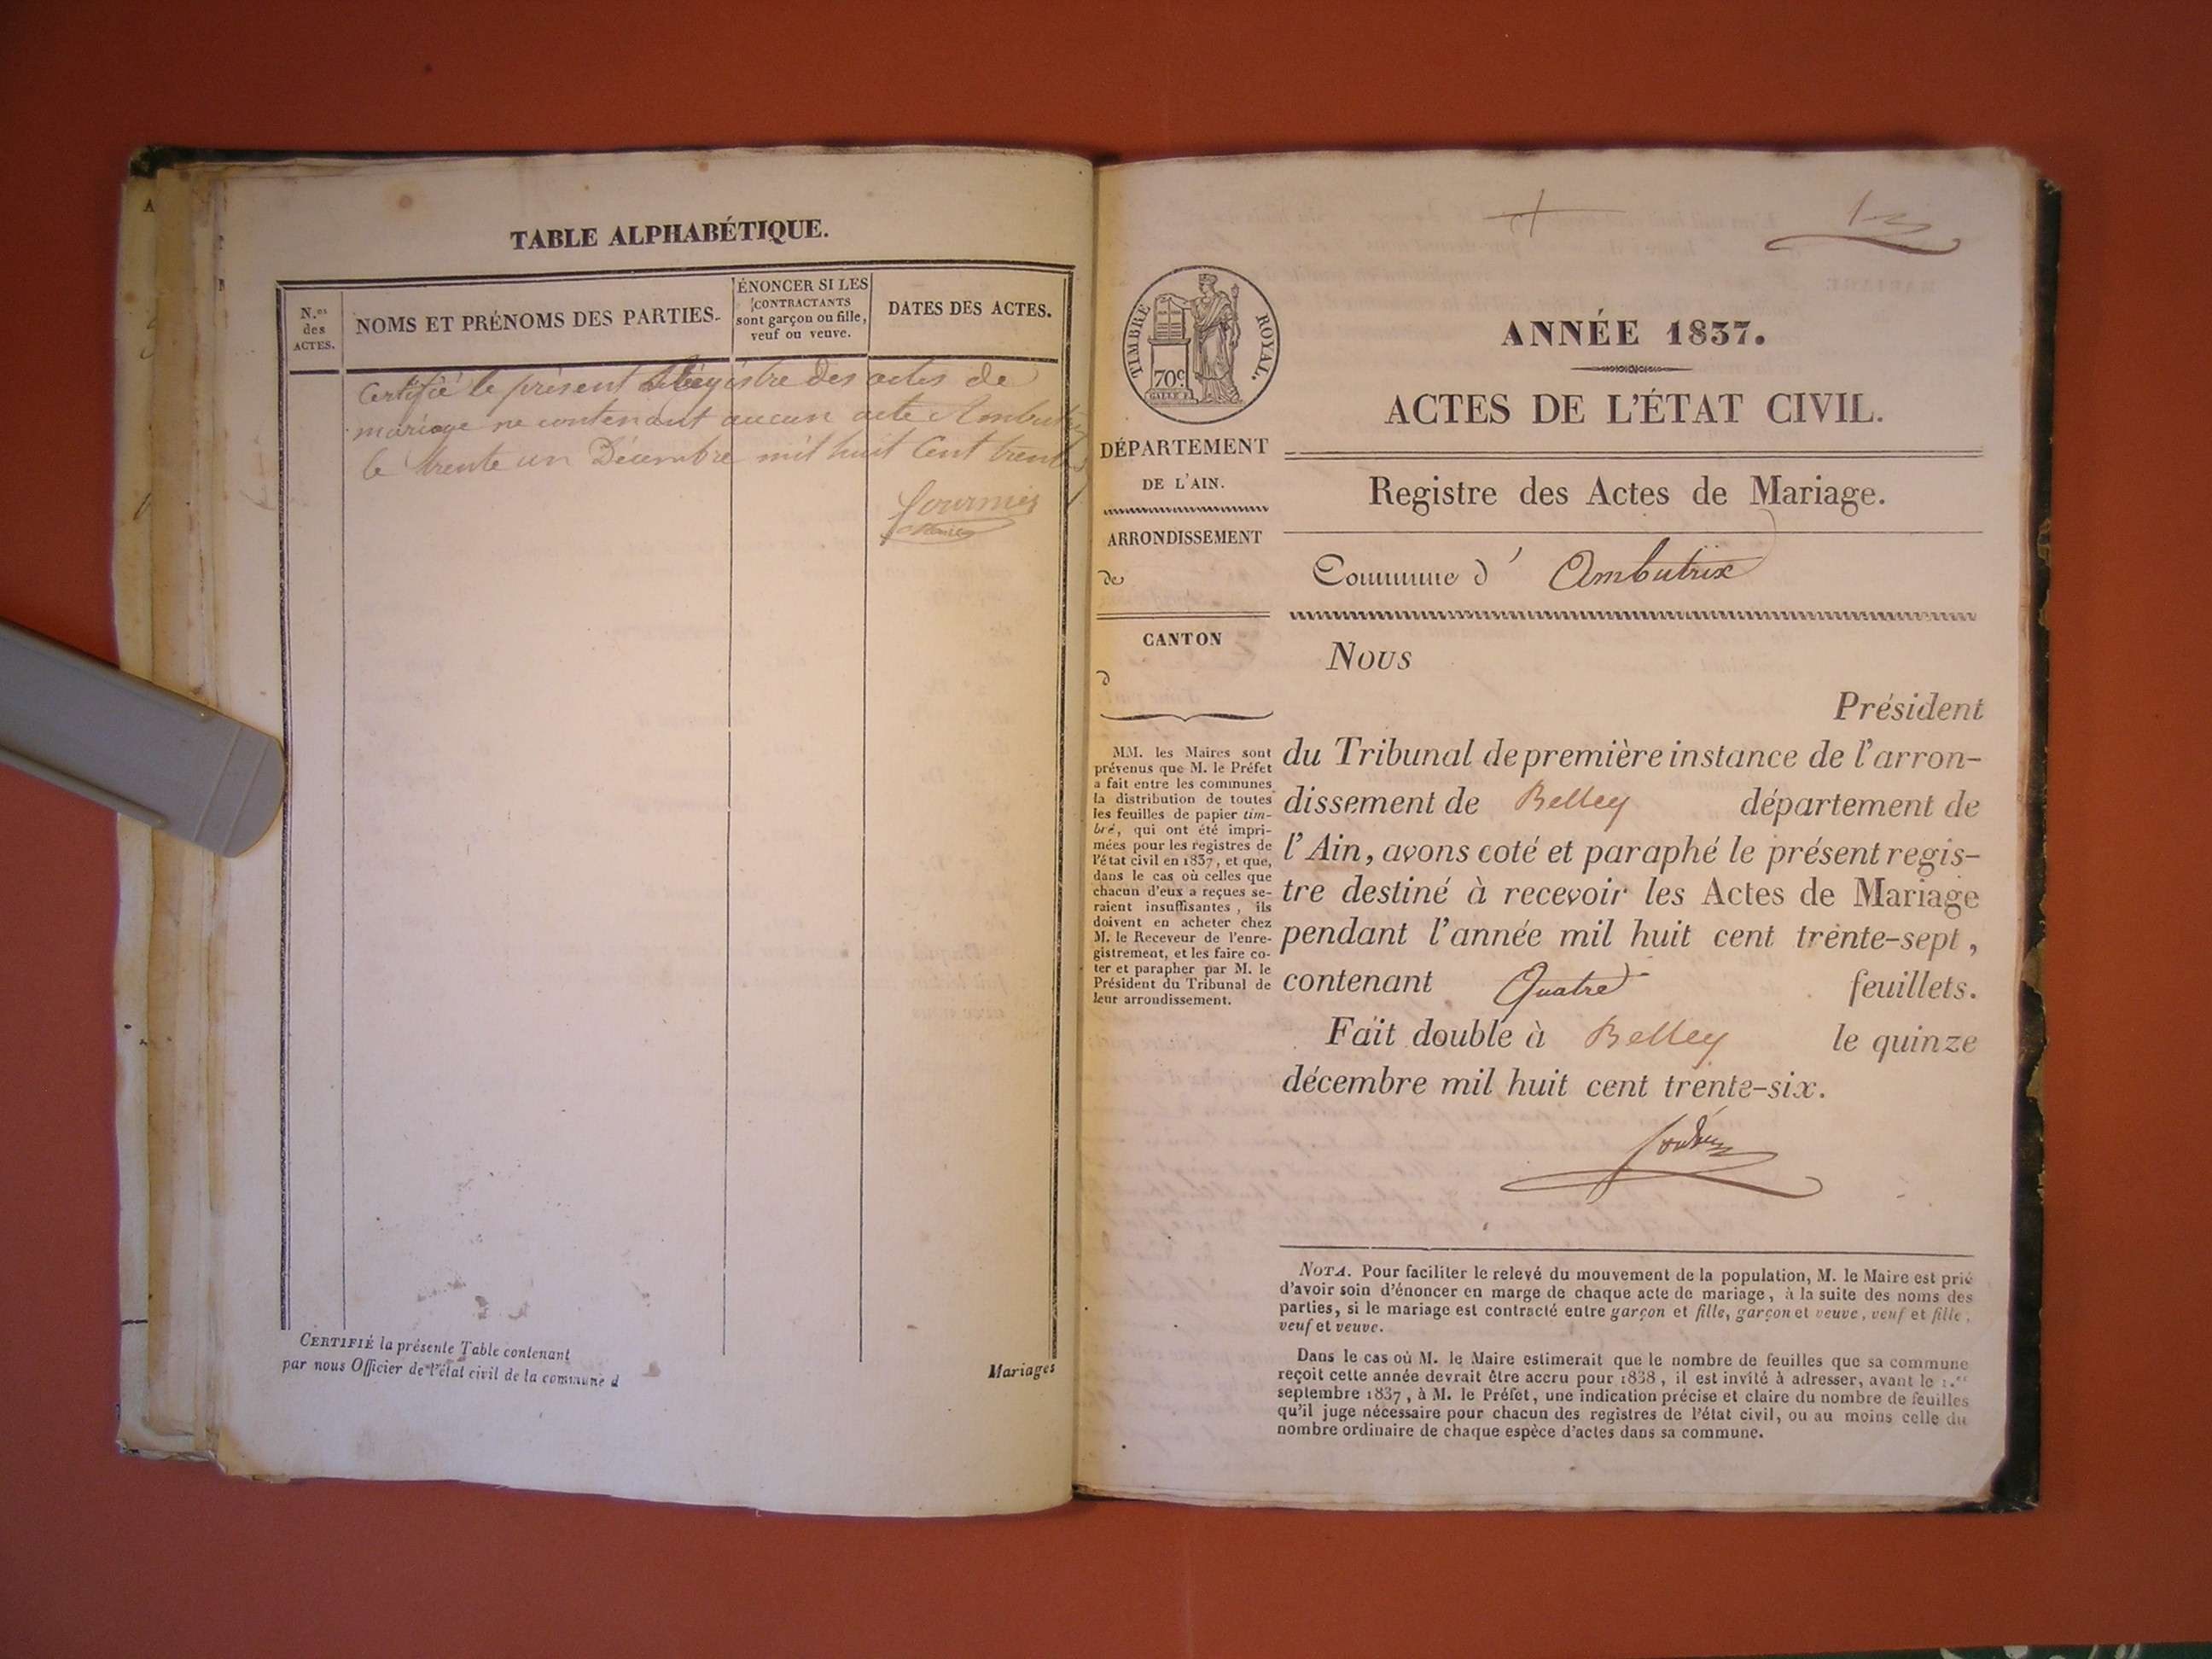 TABLE ALPHABÉTIQUE.
N.os
des
ACTES.
NOMS ET PRÉNOMS DES PARTIES.
ÉNONCER SI LES
CONTRACTANTS
sont garçon ou fille,
veuf ou veuve.
DATES DES ACTES.
Certifié le présent Régistre des actes de
mariage ne contenant aucun acte
le trente un Décembre mil huit Cent
CERTIFIÉ la présente Table contenant
Mariages
par nous Officier de l'état civil de la commune d
TIMBRE
ROYAL.
70c
DÉPARTEMENT
DE L'AIN.
ARRONDISSEMENT
de
CANTON
d
MM. les Maires sont
prévenus que M. le Préfet
a fait entre les communes
la distribution de toutes
les feuilles de papier tim-
bré, qui ont été impri-
mées pour les registres de
l'état civil en 1837, et que,
dans le cas où celles que
chacun d'eux a reçues se-
raient insuffisantes, ils
doivent en acheter chez
M. le Receveur de l'enre-
gistrement, et les faire co-
ter et parapher par M. le
Président du Tribunal de
leur arrondissement.
ANNÉE 1837.
ACTES DE L'ÉTAT CIVIL.
Registre des Actes de Mariage.
Commune d' Ambutrix
Nous
Président
du Tribunal de première instance de l'arron-
dissement de Belley département de
l'Ain, avons coté et paraphé le présent regis-
tre destiné à recevoir les Actes de Mariage
pendant l'année mil huit cent trente-sept,
contenant Quatre feuillets.
Fait double à Belley le quinze
décembre mil huit cent trente-six.
NOTA. Pour faciliter le relevé du mouvement de la population, M. le Maire est prié
d'avoir soin d'énoncer en marge de chaque acte de mariage, à la suite des noms des
parties, si le mariage est contracté entre garçon et fille, garçon et veuve, veuf et fille,
veuf et veuve.
Dans le cas où M. le Maire estimerait que le nombre de feuilles que sa commune
reçoit cette année devrait être accru pour 1838, il est invité à adresser, avant le 1.er
septembre 1837, à M. le Préfet, une indication précise et claire du nombre de feuilles
qu'il juge nécessaire pour chacun des registres de l'état civil, ou au moins celle du
nombre ordinaire de chaque espèce d'actes dans sa commune.